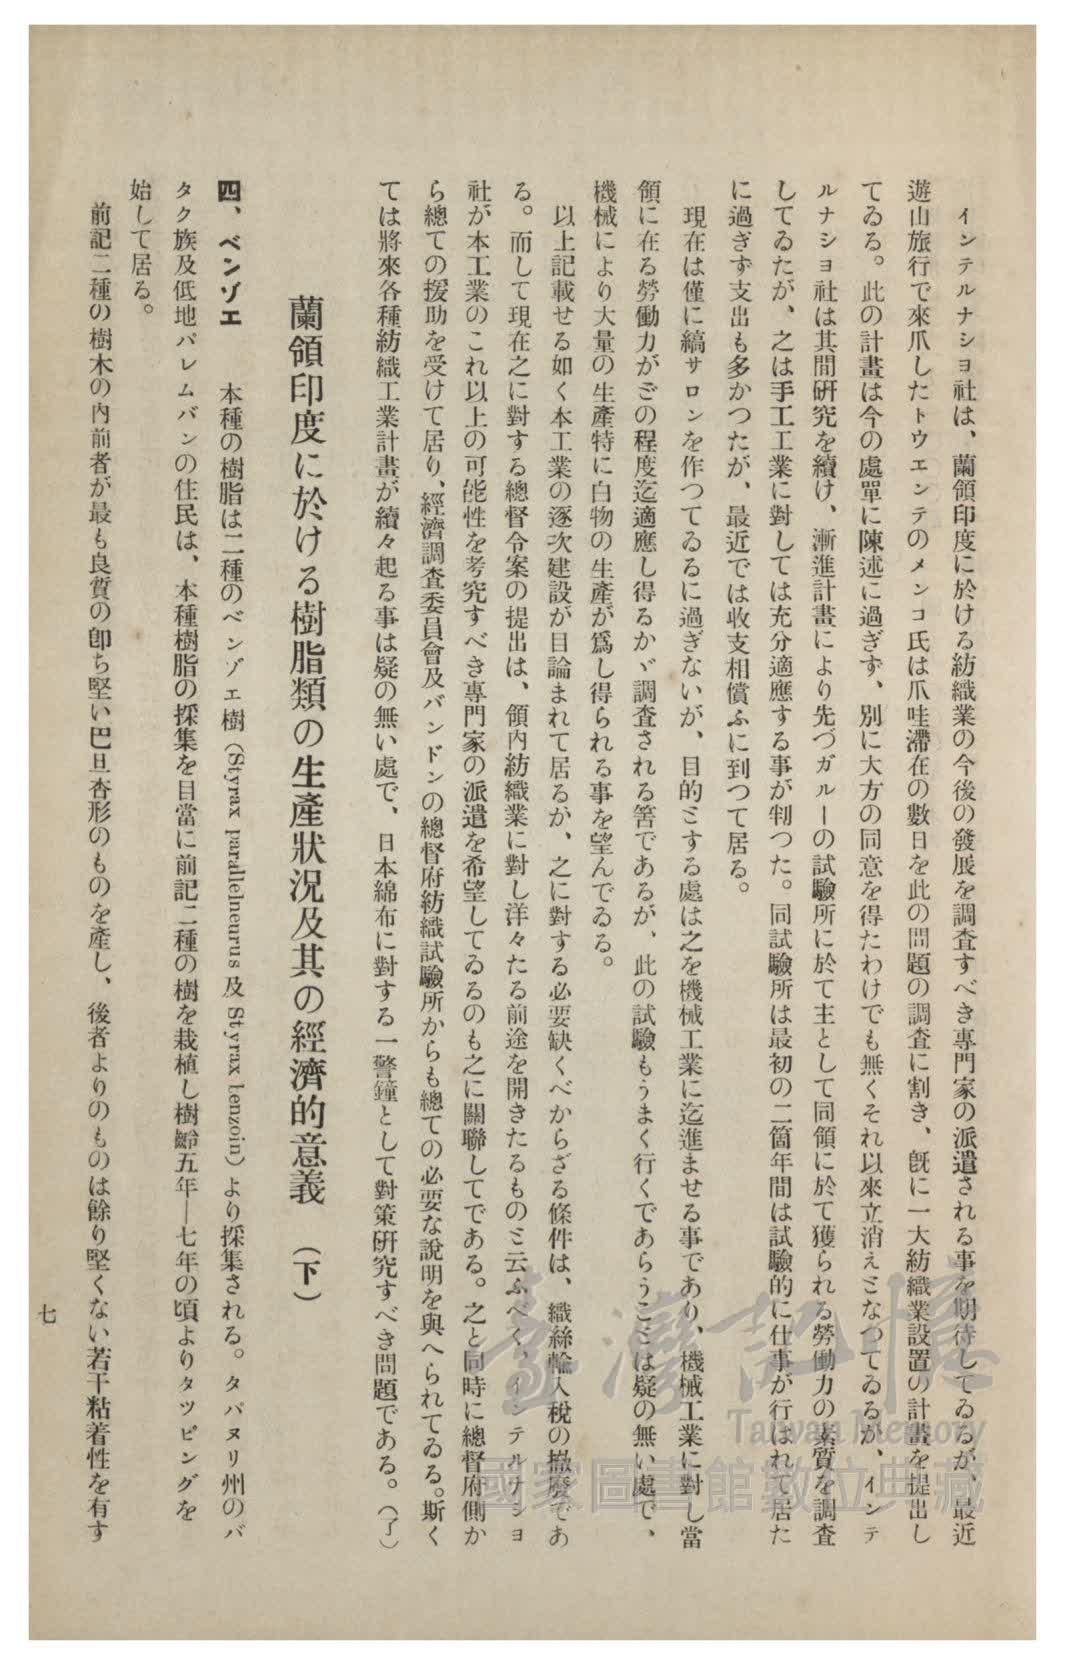 インテルナシヨ社は、蘭領印度に於ける紡織業の今後の發展を調査すべき專門家の派遣される事を期待してゐるが、最近
遊山旅行で來爪したトウエンテのメンコ氏は爪哇滯在の數日を此の問題の調査に割き、旣に一大紡織業設置の計畫を提出し
てゐる。此の計畫は今の處單に陳述に過ぎず、別に大方の同意を得たわけでも無くそれ以來立消えミなつてゐるが、インテ
ルナシヨ社は其間硏究を續け、漸進計畫により先づガルーの試驗所に於て主として同領に於て獲られる勞働力の素質を調査
してゐたが、之は手工工業に對しては充分適應する事が判つた。同試驗所は最初の二箇年間は試驗的に仕事が行はれて居た
に過ぎず支出も多かつたが、最近では收支相償ふに到つて居る。
現在は僅に縞サロンを作つてゐるに過ぎないが、目的ミする處は之を機械工業に迄進ませる事であり、機械工業に對し當
領に在る勞働力がどの程度迄適應し得るかゞ調査される筈であるが、此の試驗もうまく行くであらうこミは疑の無い處で、
機械により大量の生產特に白物の生產が爲し得られる事を望んでゐる。
以上記載せる如く本工業の逐次建設が目論まれて居るか、之に對する必要缺くべからざる條件は、織絲輸入稅の撤廢であ
る。而して現在之に對する總督令案の提出は、領內紡織業に對し洋々たる前途を開きたるものミ云ふべく、インテルナシヨ
社が本工業のこれ以上の可能性を考究すべき專門家の派遣を希望してゐるのも之に關聯してである。之と同時に總督府側か
ら總ての援助を受けて居り、經濟調査委員會及バンドンの總督府紡織試驗所からも總ての必要な說明を與へられてゐる。斯く
ては將來各種紡織工業計畫が續々起る事は疑の無い處で、日本綿布に對する一警鐘として對策硏究すべき問題である。（了）
蘭領印度に於ける樹脂類の生產狀況及其の經濟的意義　（下）
四、ベンゾエ　本種の樹脂は二種のベンゾエ樹（Styrax parallelneurus 及 Styrax benzoin）より採集される。タパヌリ州のバ
タク族及低地パレムバンの住民は、本種樹脂の採集を目當に前記二種の樹を栽植し樹齡五年—七年の頃よりタツピングを
始して居る。
前記二種の樹木の內前者が最も良質の卽ち堅い巴旦杏形のものを產し、後者よりのものは餘り堅くない若干粘着性を有す
七
臺灣記憶
Taiwan Memory
國家圖書館數位典藏